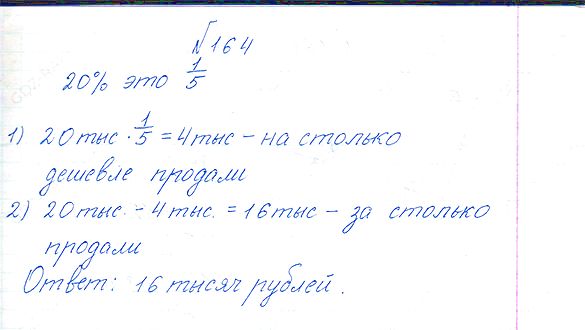 №164
20% это 1/5
1) 20 тыс · 1/5 = 4 тыс – на столько
дешевле продали
2) 20 тыс. – 4 тыс. = 16 тыс – за столько
продали
Ответ: 16 тысяч рублей.